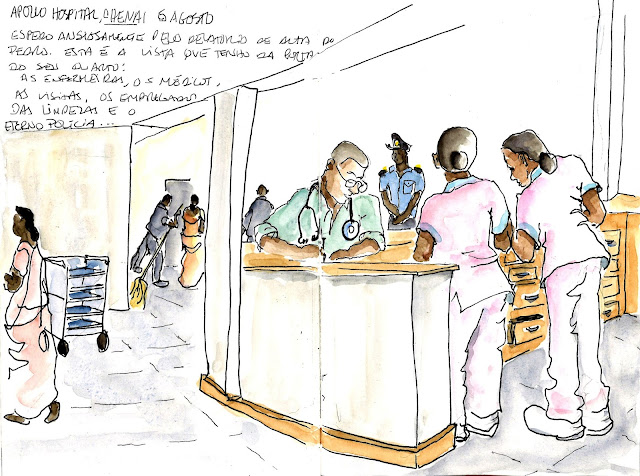 APOLLO HOSPITAL, CHENAI 6 AGOSTO
ESPERO ANSIOSAMENTE PELO RELATÓRIO DE ALTA DO
PEDRO. ESTA É A VISTA QUE TENHO DA PORTA
DO SEU QUARTO:
AS ENFERMEIRAS, OS MÉDICOS,
AS VISITAS, OS EMPREGADOS
DAS LIMPEZAS E O
ETERNO POLÍCIA...